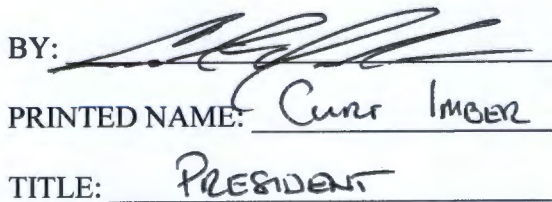 BY:
PRINTED NAME: Curt Imber
TITLE: PRESIDENT